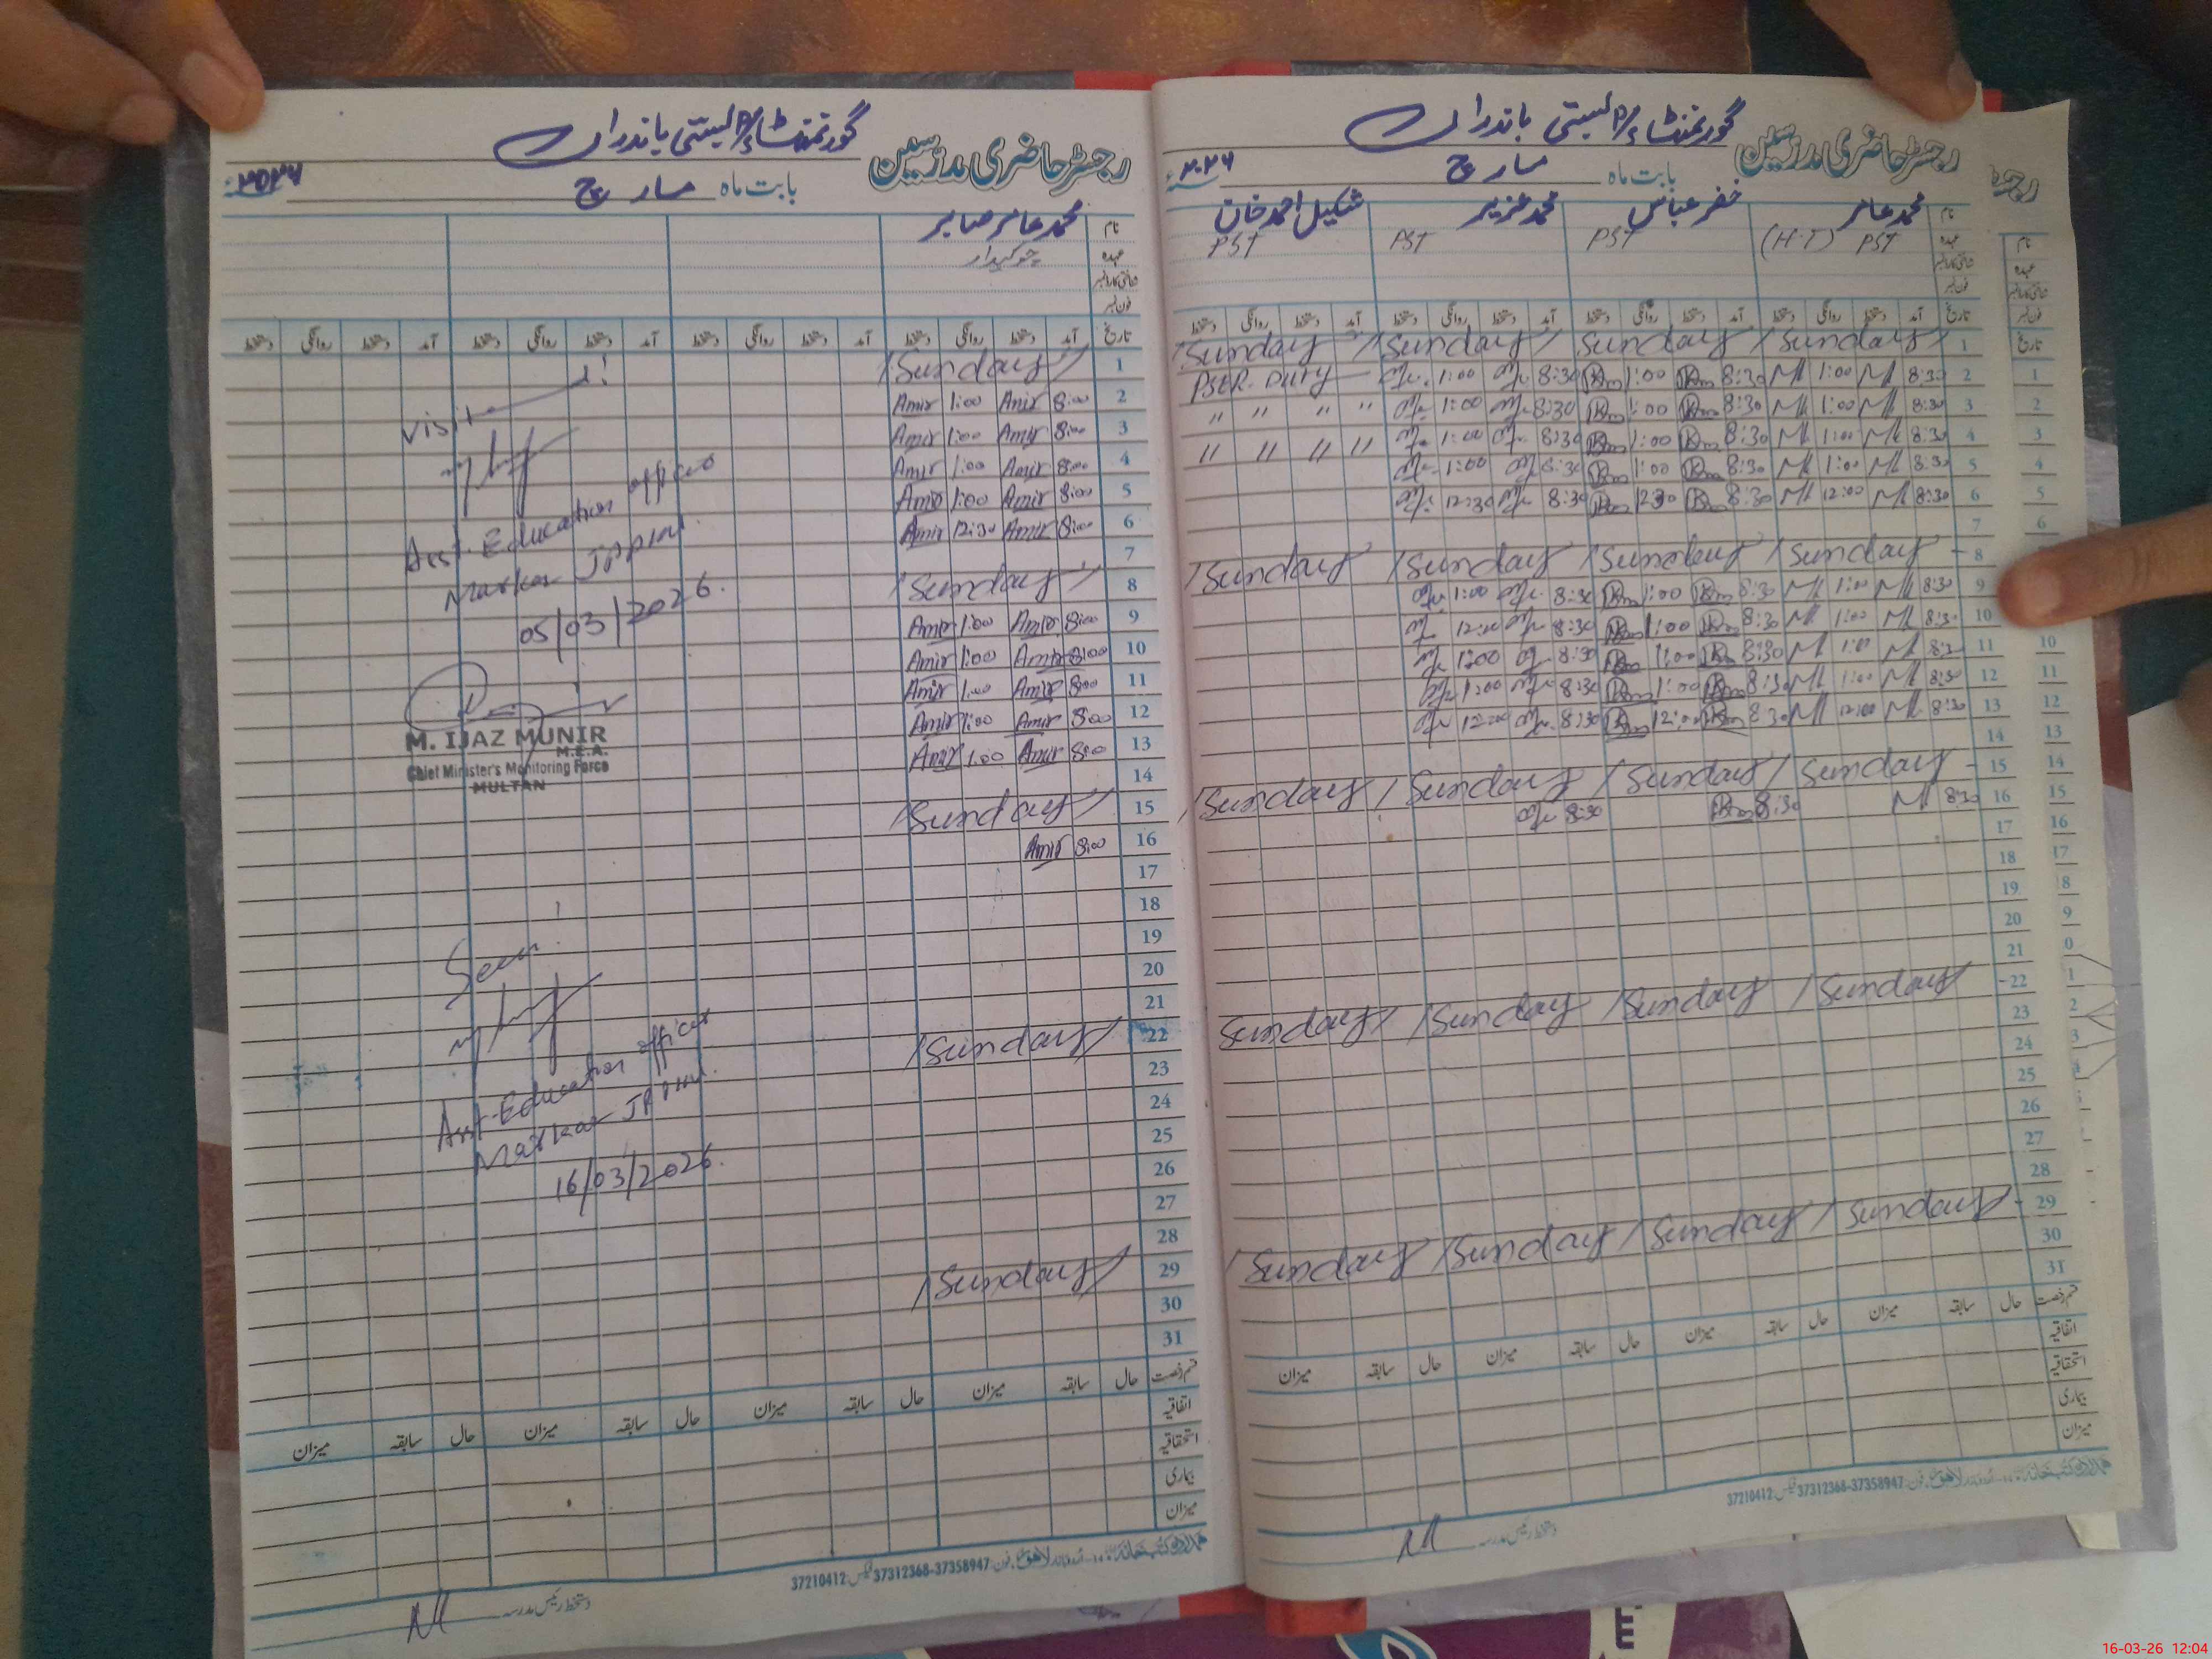 رجسٹر حاضری مدرسین گورنمنٹ P/S بستی باندراں
بابت ماہ مارچ ۲۰۲۶
نام محمد عامر صابر
عہدہ چوکیدار
شناختی کارڈ نمبر
فون نمبر
تاریخ آمد دستخط روانگی دستخط آمد دستخط روانگی دستخط آمد دستخط روانگی دستخط آمد دستخط روانگی دستخط
1 Sunday
2 8:00 Amir 1:00 Amir
3 8:00 Amir 1:00 Amir
4 8:00 Amir 1:00 Amir
5 8:00 Amir 1:00 Amir
6 8:00 Amir 12:30 Amir
7
8 Sunday
9 8:00 Amir 1:00 Amir
10 8:00 Amir 1:00 Amir
11 8:00 Amir 1:00 Amir
12 8:00 Amir 1:00 Amir
13 8:00 Amir 1:00 Amir
14
15 Sunday
16 8:00 Amir
17
18
19
20
21
22 Sunday
23
24
25
26
27
28
29 Sunday
30
31
Visit
Asst. Education officer
Markaz
05/03/2026.
M. IJAZ MUNIR
M.E.A.
Chief Minister's Monitoring Force
MULTAN
Seen
Asst-Education officer
Markaz
16/03/2026.
قسم رخصت حال سابقہ میزان حال سابقہ میزان حال سابقہ میزان حال سابقہ میزان
اتفاقیہ
استحقاقیہ
بیماری
میزان
فون: 37358947-37312368 فیکس: 37210412
دستخط رئیس مدرسہ
رجسٹر حاضری مدرسین گورنمنٹ P/S بستی باندراں
بابت ماہ مارچ ۲۰۲۶
نام محمد عامر خضر عباس محمد عزیر شکیل احمد خان
عہدہ PST (H-T) PST PST PST
شناختی کارڈ نمبر
فون نمبر
تاریخ آمد دستخط روانگی دستخط آمد دستخط روانگی دستخط آمد دستخط روانگی دستخط آمد دستخط روانگی دستخط
1 Sunday Sunday Sunday Sunday
2 8:30 1:00 8:30 1:00 8:30 1:00 Duty
3 8:30 1:00 8:30 1:00 8:30 1:00 " " " "
4 8:30 1:00 8:30 1:00 8:30 1:00 " " " "
5 8:30 1:00 8:30 1:00 8:30 1:00
6 8:30 12:00 8:30 12:30 8:30 12:30
7
8 Sunday Sunday Sunday Sunday
9 8:30 1:00 8:30 1:00 8:30 1:00
10 8:30 1:00 8:30 1:00 8:30
11 8:30 1:00 8:30 1:00 8:30
12 8:30 1:00 8:30 1:00 8:30 1:00
13 8:30 12:00 8:30 12:00 8:30 12:00
14
15 Sunday Sunday Sunday Sunday
16 8:30 8:30 8:30
17
18
19
20
21
22 Sunday Sunday Sunday Sunday
23
24
25
26
27
28
29 Sunday Sunday Sunday Sunday
30
31
قسم رخصت حال سابقہ میزان حال سابقہ میزان حال سابقہ میزان حال سابقہ میزان
اتفاقیہ
استحقاقیہ
بیماری
میزان
فون: 37358947-37312368 فیکس: 37210412
دستخط رئیس مدرسہ
16-03-26 12:04